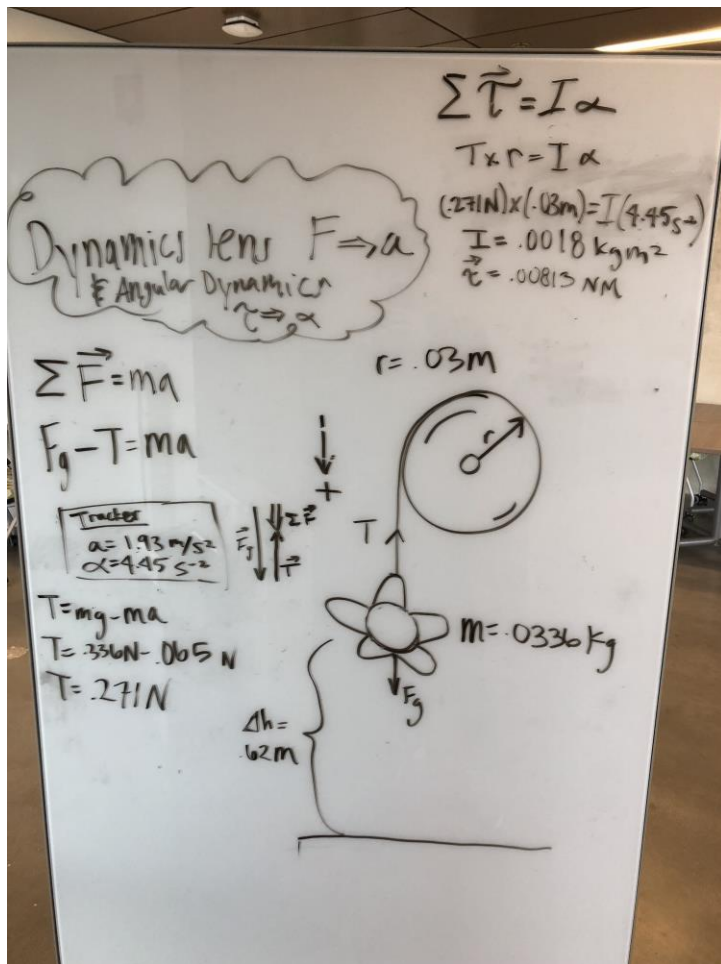 Dynamics lens F⇒a
& Angular Dynamics
τ⇒α
Σ τ⃗ = I α
T x r = I α
(.271N)x(.03m)=I(4.45s⁻²)
I = .0018 kgm²
τ⃗ = .00813 NM
ΣF⃗ = ma
Fg - T = ma
Tracker
a= 1.93 m/s²
α=4.45 s⁻²
T=mg-ma
T= .336N-.065N
T= .271N
+
F⃗g
ΣF⃗
T⃗
r= .03m
r
T
m=.0336kg
Fg
Δh=
.62m